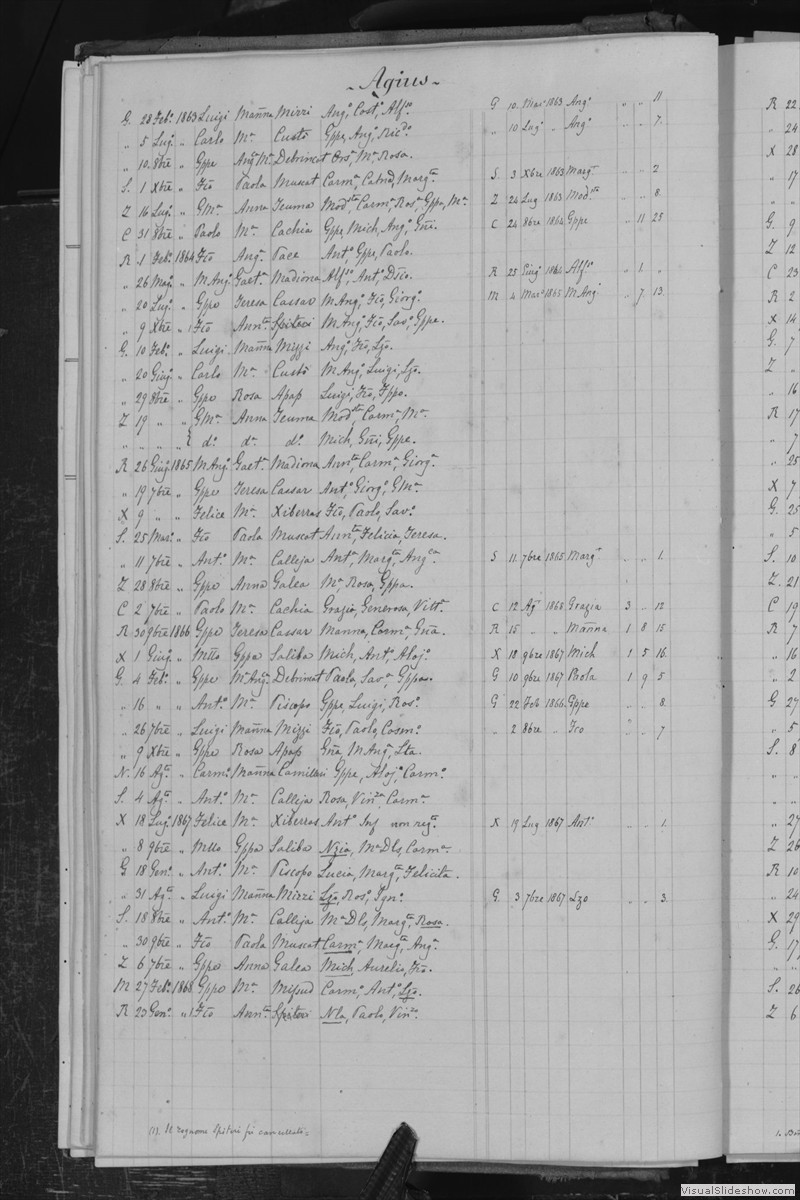 Agius
G. 28 Febº 1863 Luigi Mañna Mizzi Angº, Costº, Alfº. G 10. Marº 1863 Angº „ „ 11
„ 5 Lugº „ Carlo Mª Custò Gppe, Angº, Ricdº. „ 10 Lugº „ Angº „ „ 7.
„ 10. 8bre „ Gppe Angª Mª Debrincat Orsª, Mª Rosa.
S. 1 Xbre „ Fco Paola Muscat Carmª, Catnª, Margta. S 3 Xbre 1863 Margta „ „ 2
Z 16 Lugº „ GMª Anna Teuma Modsta, Carmª, Rosª, Gppa, Mª Z 24 Lug 1863 Modsta „ „ 8.
C 31 8bre „ Paolo Mª Cachia Gppe, Mich, Angº, Gñi. C 24 8bre 1864 Gppe „ 11 25
R 1 Febº 1864 Fco Angª Pace Antº, Gppe, Paolo.
„ 26 Magº „ M Angº Gaetª Madiona Alfº, Antº, Dco. R 25 Giugº 1864 Alfº „ 1. „
„ 20 Lugº „ Gppe Teresa Cassar M Angº, Fco, Giorgº. M 4 Marº 1865 M Angº „ 7 13.
„ 9 Xbre „ 1 Fco Annta Spiteri M Angº, Fco, Savº, Gppe.
G. 10 Febº „ Luigi Mañna Mizzi Angº, Fco, Lzo.
„ 20 Giugº „ Carlo Mª Custò M Angº, Luigi, Lzo.
„ 29 8bre „ Gppe Rosa Apap Luigi, Fco, Fppo.
Z 19 „ „ GMª Anna Teuma Modsta, Carmª, Mª
„ „ „ „ { dº dº dº Mich, Gñi, Gppe.
R 26 Giugº 1865 M Angº Gaetª Madiona Annta, Carmª, Giorgª.
„ 19 7bre „ Gppe Teresa Cassar Antº, Giorgº, GMª
X 9 „ „ Felice Mª Xiberras Fco, Paolo, Savº.
S. 25 Marº „ Fco Paola Muscat Annta, Felicia, Teresa.
„ 11 7bre „ Antº Mª Calleja Antª, Margta, Angca. S 11. 7bre 1865 Margta „ „ 1.
Z 28 8bre „ Gppe Anna Galea Mª, Rosa, Gppa.
C 2 7bre „ Paolo Mª Cachia Grazia, Generosa, Vittª. C 12 Agº 1868 Grazia 3 „ 12
R 30 9bre 1866 Gppe Teresa Cassar Manna, Carmª, Gña. R 15 „ „ Mañna 1 8 15
X 1 Giugº „ Mtto Gppa Saliba Mich, Antº, Alojº. X 18 9bre 1867 Mich 1 5 16.
G. 4 Febº „ Gppe Mª Angª Debrincat Paola, Savª, Gppa. G 10 9bre 1867 Paola 1 9 5
„ 16 „ „ Antº Mª Piscopo Gppe, Luigi, Rosº. G 22 Feb 1866 Gppe „ „ 8.
„ 26 7bre „ Luigi Mañna Mizzi Fco, Paolo, Cosmº. „ 2 8bre „ Fco „ „ 7
„ 9 Xbre „ Gppe Rosa Apap Gña, M Angª, Lta.
N. 16 Agº „ Carmº Mañna Camilleri Gppe, Alojº, Carmº.
S. 4 Agº „ Antº Mª Calleja Rosa, Vinza, Carmª.
X 18 Lugº 1867 Felice Mª Xiberras Antº Inf non regº. X 19 Lug 1867 Antº „ „ 1.
„ 8 9bre „ Mtto Gppa Saliba Nzia, Mª Dlo, Carmª.
G 18 Genº „ Antº Mª Piscopo Lucia, Margta, Felicita.
„ 31 Agº „ Luigi Mañna Mizzi Lzo, Rosº, Ignº. G. 3 7bre 1867 Lzo „ „ 3.
S. 18 8bre „ Antº Mª Calleja Mª Dlo, Margta, Rosa.
„ 30 9bre „ Fco Paola Muscat Carmª, Margta, Angª.
Z 6 7bre „ Gppe Anna Galea Mich, Aurelio, Fco.
M 27 Febº 1868 Gppe Mª Mifsud Carmº, Antº, Lzo.
R 23 Genº „ 1 Fco Annta Spiteri Nla, Paolo, Vinza.
(1). Il cognome Spiteri fù cancellato.
VisualSlideshow.com